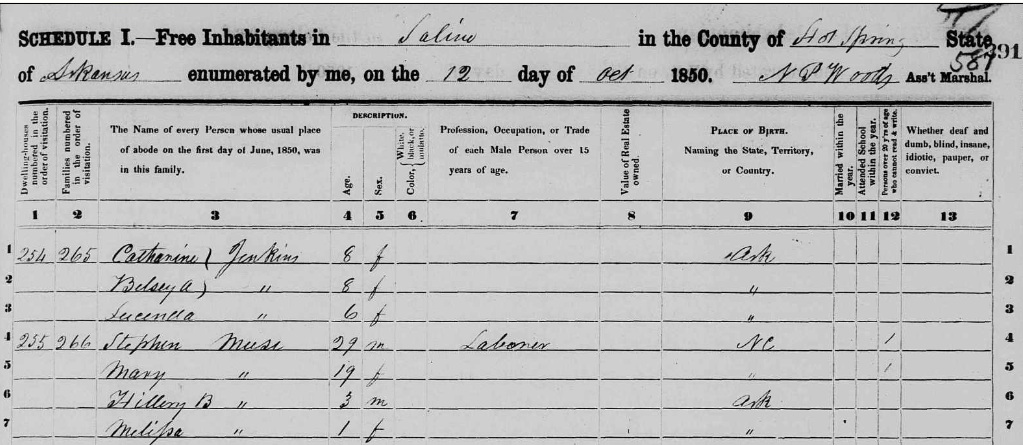 SCHEDULE I.—Free Inhabitants in Saline in the County of Hot Spring State
of Arkansas enumerated by me, on the 12 day of Oct 1850. N P Woods Ass't Marshal.
587 391
Dwelling-houses numbered in the order of visitation.
Families numbered in the order of visitation.
The Name of every Person whose usual place of abode on the first day of June, 1850, was in this family.
DESCRIPTION.
Age.
Sex.
Color, { White, black, or mulatto.
Profession, Occupation, or Trade of each Male Person over 15 years of age.
Value of Real Estate owned.
PLACE OF BIRTH.
Naming the State, Territory, or Country.
Married within the year.
Attended School within the year.
Persons over 20 y'rs of age who cannot read & write.
Whether deaf and dumb, blind, insane, idiotic, pauper, or convict.
1 2 3 4 5 6 7 8 9 10 11 12 13
1 254 265 Catharine } Jenkins 8 f Ark 1
2 Betsey A } " 8 f " 2
3 Lucenda " 6 f " 3
4 255 266 Stephen Muse 29 m Laborer NC 1 4
5 Mary " 19 f " 1 5
6 Hillery B " 3 m Ark 6
7 Melissa " 1 f " 7